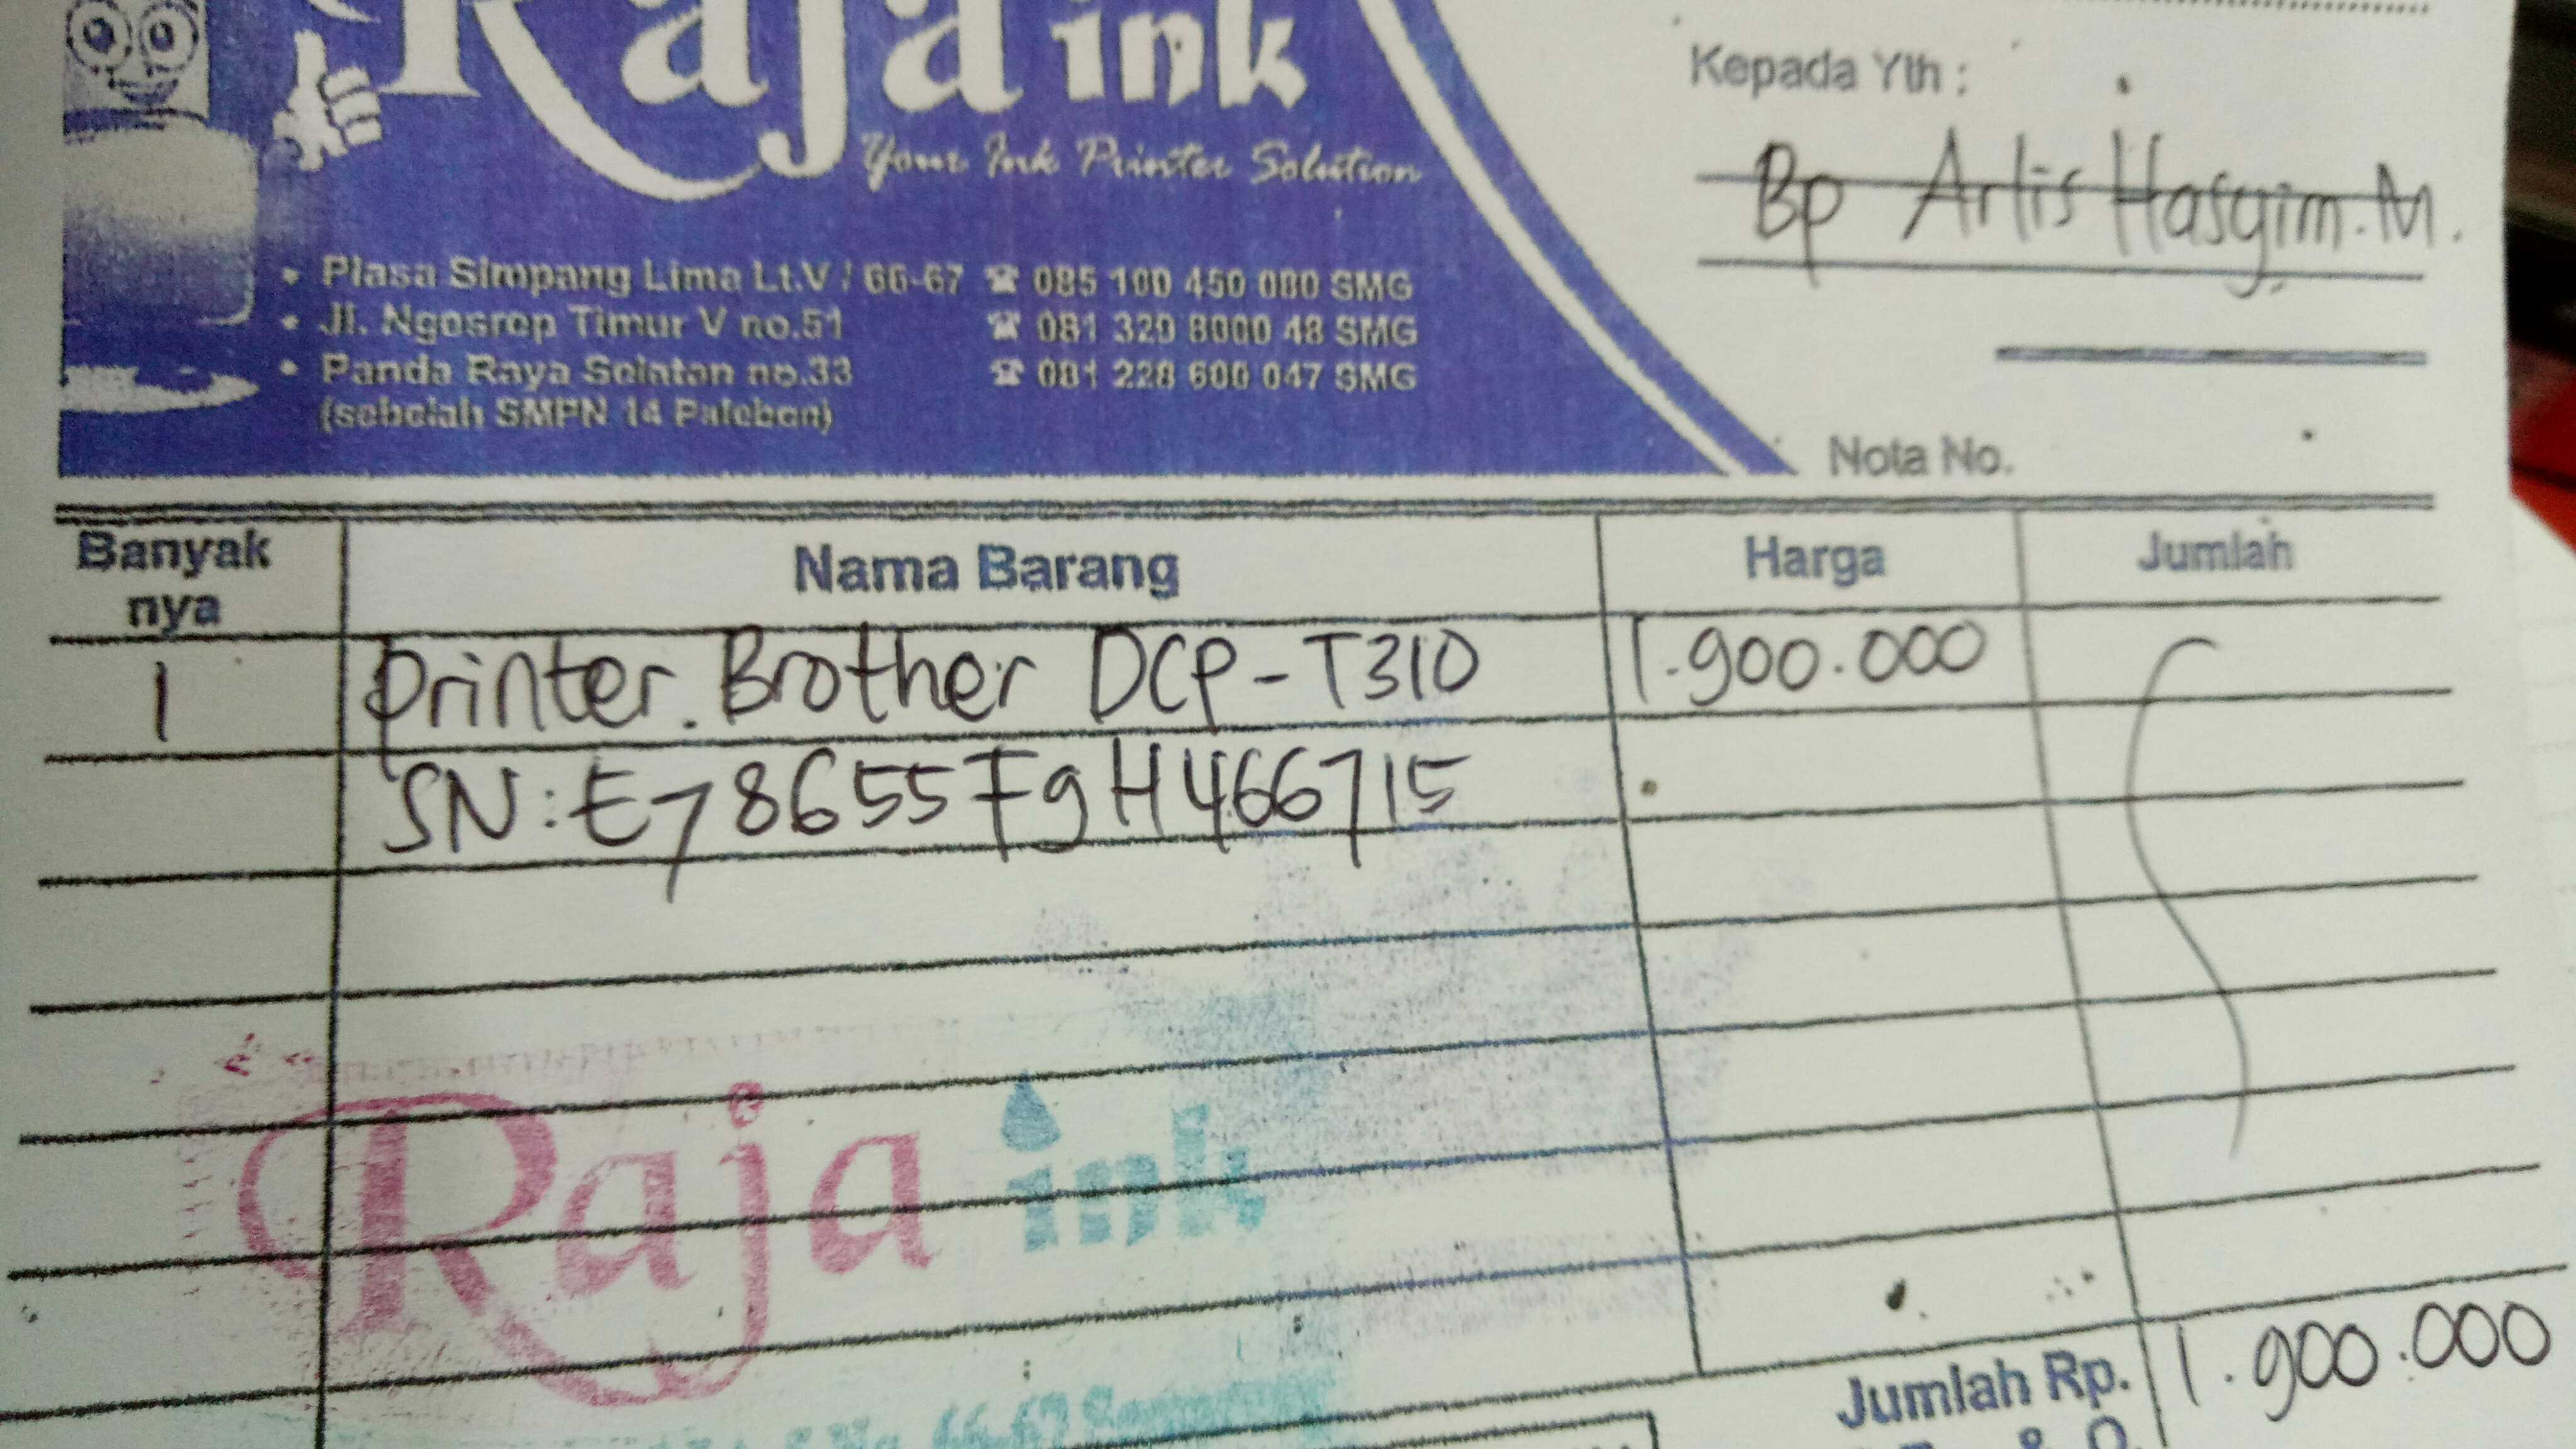 Raja ink
Your Ink Printer Solution
• Plasa Simpang Lima Lt.V / 66-67 ☎ 085 100 450 080 SMG
• Jl. Ngesrep Timur V no.51 ☎ 081 329 8000 48 SMG
• Panda Raya Selatan no.33 ☎ 081 228 600 047 SMG
(sebelah SMPN 14 Palebon)
Kepada Yth :
Bp Arlis Hasyim.M.
Nota No.
Banyak nya Nama Barang Harga Jumlah
1 Printer. Brother DCP-T310 1.900.000
SN: E78655F9H466715
Raja ink
Jumlah Rp. 1.900.000